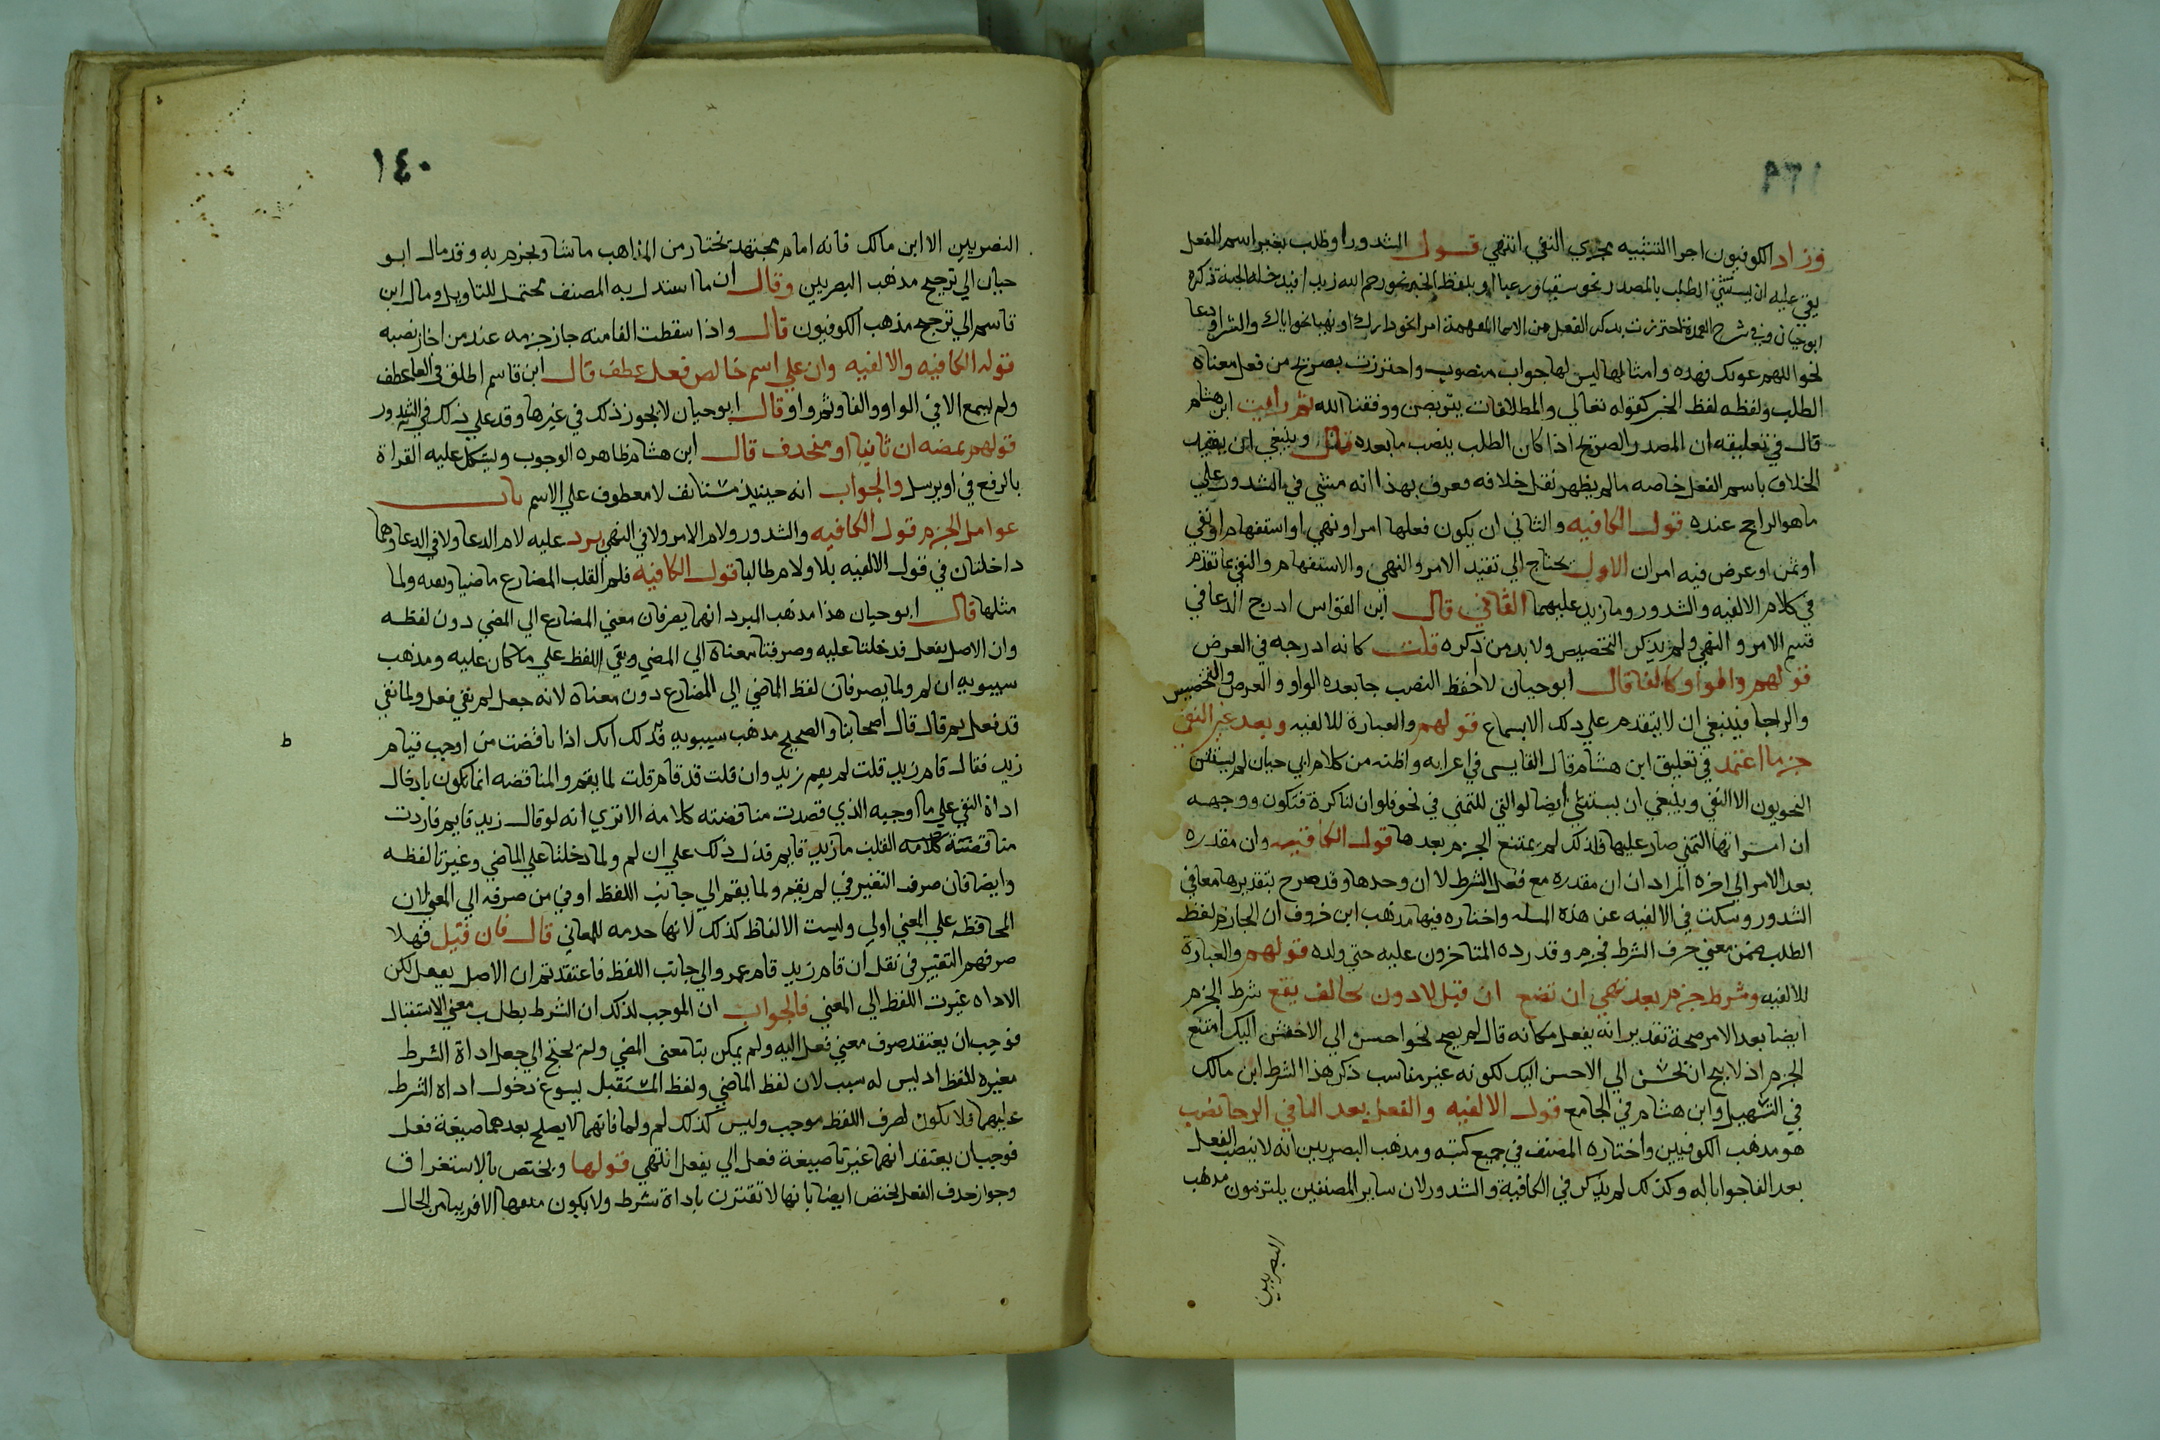 ١٣٩
وزاد الكوفيون اجرا التشبيه مجري النفي انتهي قول الشدور او طلب بغير اسم الفعل
يبقي عليه ان يستثني الطلب بالمصدر نحو سقيا ورعيا او بلفظ الخبر نحو رحم الله زيدا فيدخله الجنة ذكره
ابو حيان وفي شرح العمدة احترزت بذكر الفعل من الاسما المفهمة امرا نحو دارك او نهيا نحو اياك والشر او دعا
نحو اللهم عونك فهذه وامثالها ليس لها جواب منصوب واحترزت بصريح من فعل معناه
الطلب ولفظه لفظ الخبر كقوله تعالي والمطلاقات يتربصن ووفقنا الله ثم رايت ابن هشام
قال في تعليقه ان المصدر الصريح اذا كان الطلب ينصب ما بعده قال وينبغي ان يقيد
الخلاف باسم الفعل خاصه ما لم يظهر نقل خلافه فعرف بهذا انه مشي في الشدور علي
ما هو الراجح عنده قول الكافيه والثاني ان يكون فعلها امرا او نهي او استفهام او نفي
او تمن او عرض فيه امران الاول يحتاج الي تقيد الامر والنهي والاستفهام والنفي بما تقدم
في كلام الالفيه والشدور وما زيد عليهما الثاني قال ابن القواس ادرج الدعا في
قسم الامر والنهي ولم يذكر التخصيص ولا بد من ذكره قلت كانه ادرجه في العرض
قولهم والواو كالفا قال ابو حيان لا احفظ النصب جا بعده الواو والعرض والتخصيص
والرجا فينبغي ان لا يتقدم علي ذلك الا بسماع قولهم والعبارة للالفيه وبعد غير النفي
جزما اعتمد في تعليق ابن هشام قال الفارسي في اعرابه واظنه من كلام ابي حيان لم يستثن
النحويون الا النفي وينبغي ان يستثني ايضا لو التي للتمني في نحو فلو ان لنا كرة فنكون ووجهه
ان اشرابها التمني صار عليها فلذلك لم يمتنع الجزم بعدها قول الكافيه وان مقدره
بعد الامر الي اخره المراد ان ان مقدره مع فعل الشرط لا ان وحدها وقد صرح بتقديرها معا في
الشدور وسكت في الالفيه عن هذه المسله واختاره فيها مذهب ابن خروف ان الجازم لفظ
الطلب ضمن معني حرف الشرط فجزم وقد رده المتاخرون عليه حتي ولده قولهم والعبارة
للالفيه وشرط جزم بعد نهي ان تضع ان قبل لا دون تخالف يقع شرط الجزم
ايضا بعد الامر صحة تقدير انه يفعل مكانه قال لم يصح نحو احسن الي الاحسن اليك امتنع
الجزم اذ لا يصح ان تحسن الي الاحسن اليك لكونه غير مناسب ذكر هذا الشرط ابن مالك
في التسهيل وابن هشام في الجامع قول الالفيه والفعل بعد الفا في الرجا نصب
هو مذهب الكوفيين واختاره المصنف في جميع كتبه ومذهب البصريين انه لا ينصب الفعل
بعد الفا جوابا له وكذلك لم يذكر في الكافية والشدور لان ساير المصنفين يلتزمون مذهب
البصريين
١٤٠
البصريين الا ابن مالك فانه امام مجتهد يختار من المذاهب ما شا ويجزم به وقد مال ابو
حيان الي ترجيح مذهب البصريين وقال ان ما استدل به المصنف محتمل للتاويل ومال ابن
قاسم الي ترجيح مذهب الكوفيون قال واذا سقطت الفا منه جاز جزمه عند من اجاز نصبه
قوله الكافيه والالفيه وان علي اسم خالص فعل عطف قال ابن قاسم اطلق في العاطف
ولم يسمع الا في الواو والفا وثم واو وقال ابو حيان لا يجوز ذلك في غيرها وقد علي ذلك في الشدور
قولهم بمضه ان ثابتا او منحدف قال ابن هشام ظاهره الوجوب ويشكل عليه القراة
بالرفع في او يرسل والجواب انه حينيذ مستانف لا معطوف علي الاسم باب
عوامل الجزم قول الكافيه والشدور ولام الامر ولا في النهي يرد عليه لام الدعا ولا في الدعا وهما
داخلتان في قول الالفيه بلا ولام طالبا قول الكافيه فلم لقلب المضارع ماضيا ونفيه ولما
مثلها قال ابو حيان هذا مذهب المبرد انهما يصرفان معني المضارع الي المضي دون لفظه
وان الاصل يفعل فدخلتا عليه وصرفتا معناه الي المضي وبقي اللفظ علي ما كان عليه ومذهب
سيبويه ان لم ولما يصرفان لفظ الماضي الي المضارع دون معناه لانه جعل لم نفي فعل ولما نفي
قد فعل ثم قال قال اصحابنا والصحيح مذهب سيبويه فذلك انك اذا ناقضت من اوجب قيام
زيد فقال قام زيد قلت لم يقم زيد وان قلت قد قام قلت لما يقم والمناقضه انما تكون بادخال
اداة النفي علي ما اوجبه الذي قصدت مناقضته كلامه الا تري انه لو قال زيد قايم فاردت
مناقضته كلامه القلت ما زيد قايم فدل ذلك علي ان لم ولما دخلتا علي الماضي وغيرتا لفظه
وايضا فان صرف التغير في لم يقم ولما يقم الي جانب اللفظ اوفي من صرفه الي المعني لان
المحافظه علي المعني اولي وليست الالفاظ كذلك لانها خدمه للمعاني قال فان قيل فهلا
صرفهم التغيير في نقل ان قام زيد قام عمرو الي جانب اللفظ فاعتقدتم ان الاصل يفعل لكن
الاداه غيرت اللفظ الي المعني فالجواب ان الموجب لذلك ان الشرط يطلب معني الاستقبال
فوجب ان يعتقد صرف معني فعل اليه ولم يمكن بتا معني المضي ولم يحتج الي جعل اداة الشرط
مغيره للفظ اذ ليس له سبب لان لفظ الماضي ولفظ المستقبل يسوغ دخول اداه الشرط
عليهما فلا يكون لصرف اللفظ موجب وليس كذلك لم ولما فانهما لا يصلح بعدهما صيغة فعل
فوجب ان يعتقد انهما غيرتا صبيغة فعل الي يفعل انتهي قولها ويختص بالاستغراق
وجواز حذف الفعل يختص ايضا بانها لا تقترن باداة شرط ولا يكون منفيها الا قريبا من الحال
ط